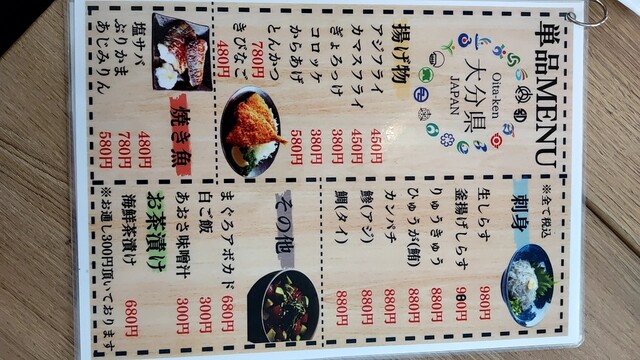 単品MENU
Oita-ken
大分県
JAPAN
揚げ物
アジフライ 450円
カマスフライ 450円
ぎょろっけ 380円
コロッケ 380円
からあげ 580円
とんかつ 780円
きびなご 480円
焼き魚
塩サバ 480円
ぶりかま 780円
あじみりん 580円
刺身
※全て税込
生しらす 980円
釜揚げしらす 980円
りゅうきゅう 880円
ひゅうが(鮪) 880円
カンパチ 880円
鯵(アジ) 880円
鯛(タイ) 880円
その他
まぐろアボカド 680円
白ご飯 300円
あおさ味噌汁 300円
お茶漬け
海鮮茶漬け 680円
※お通し300円頂いております